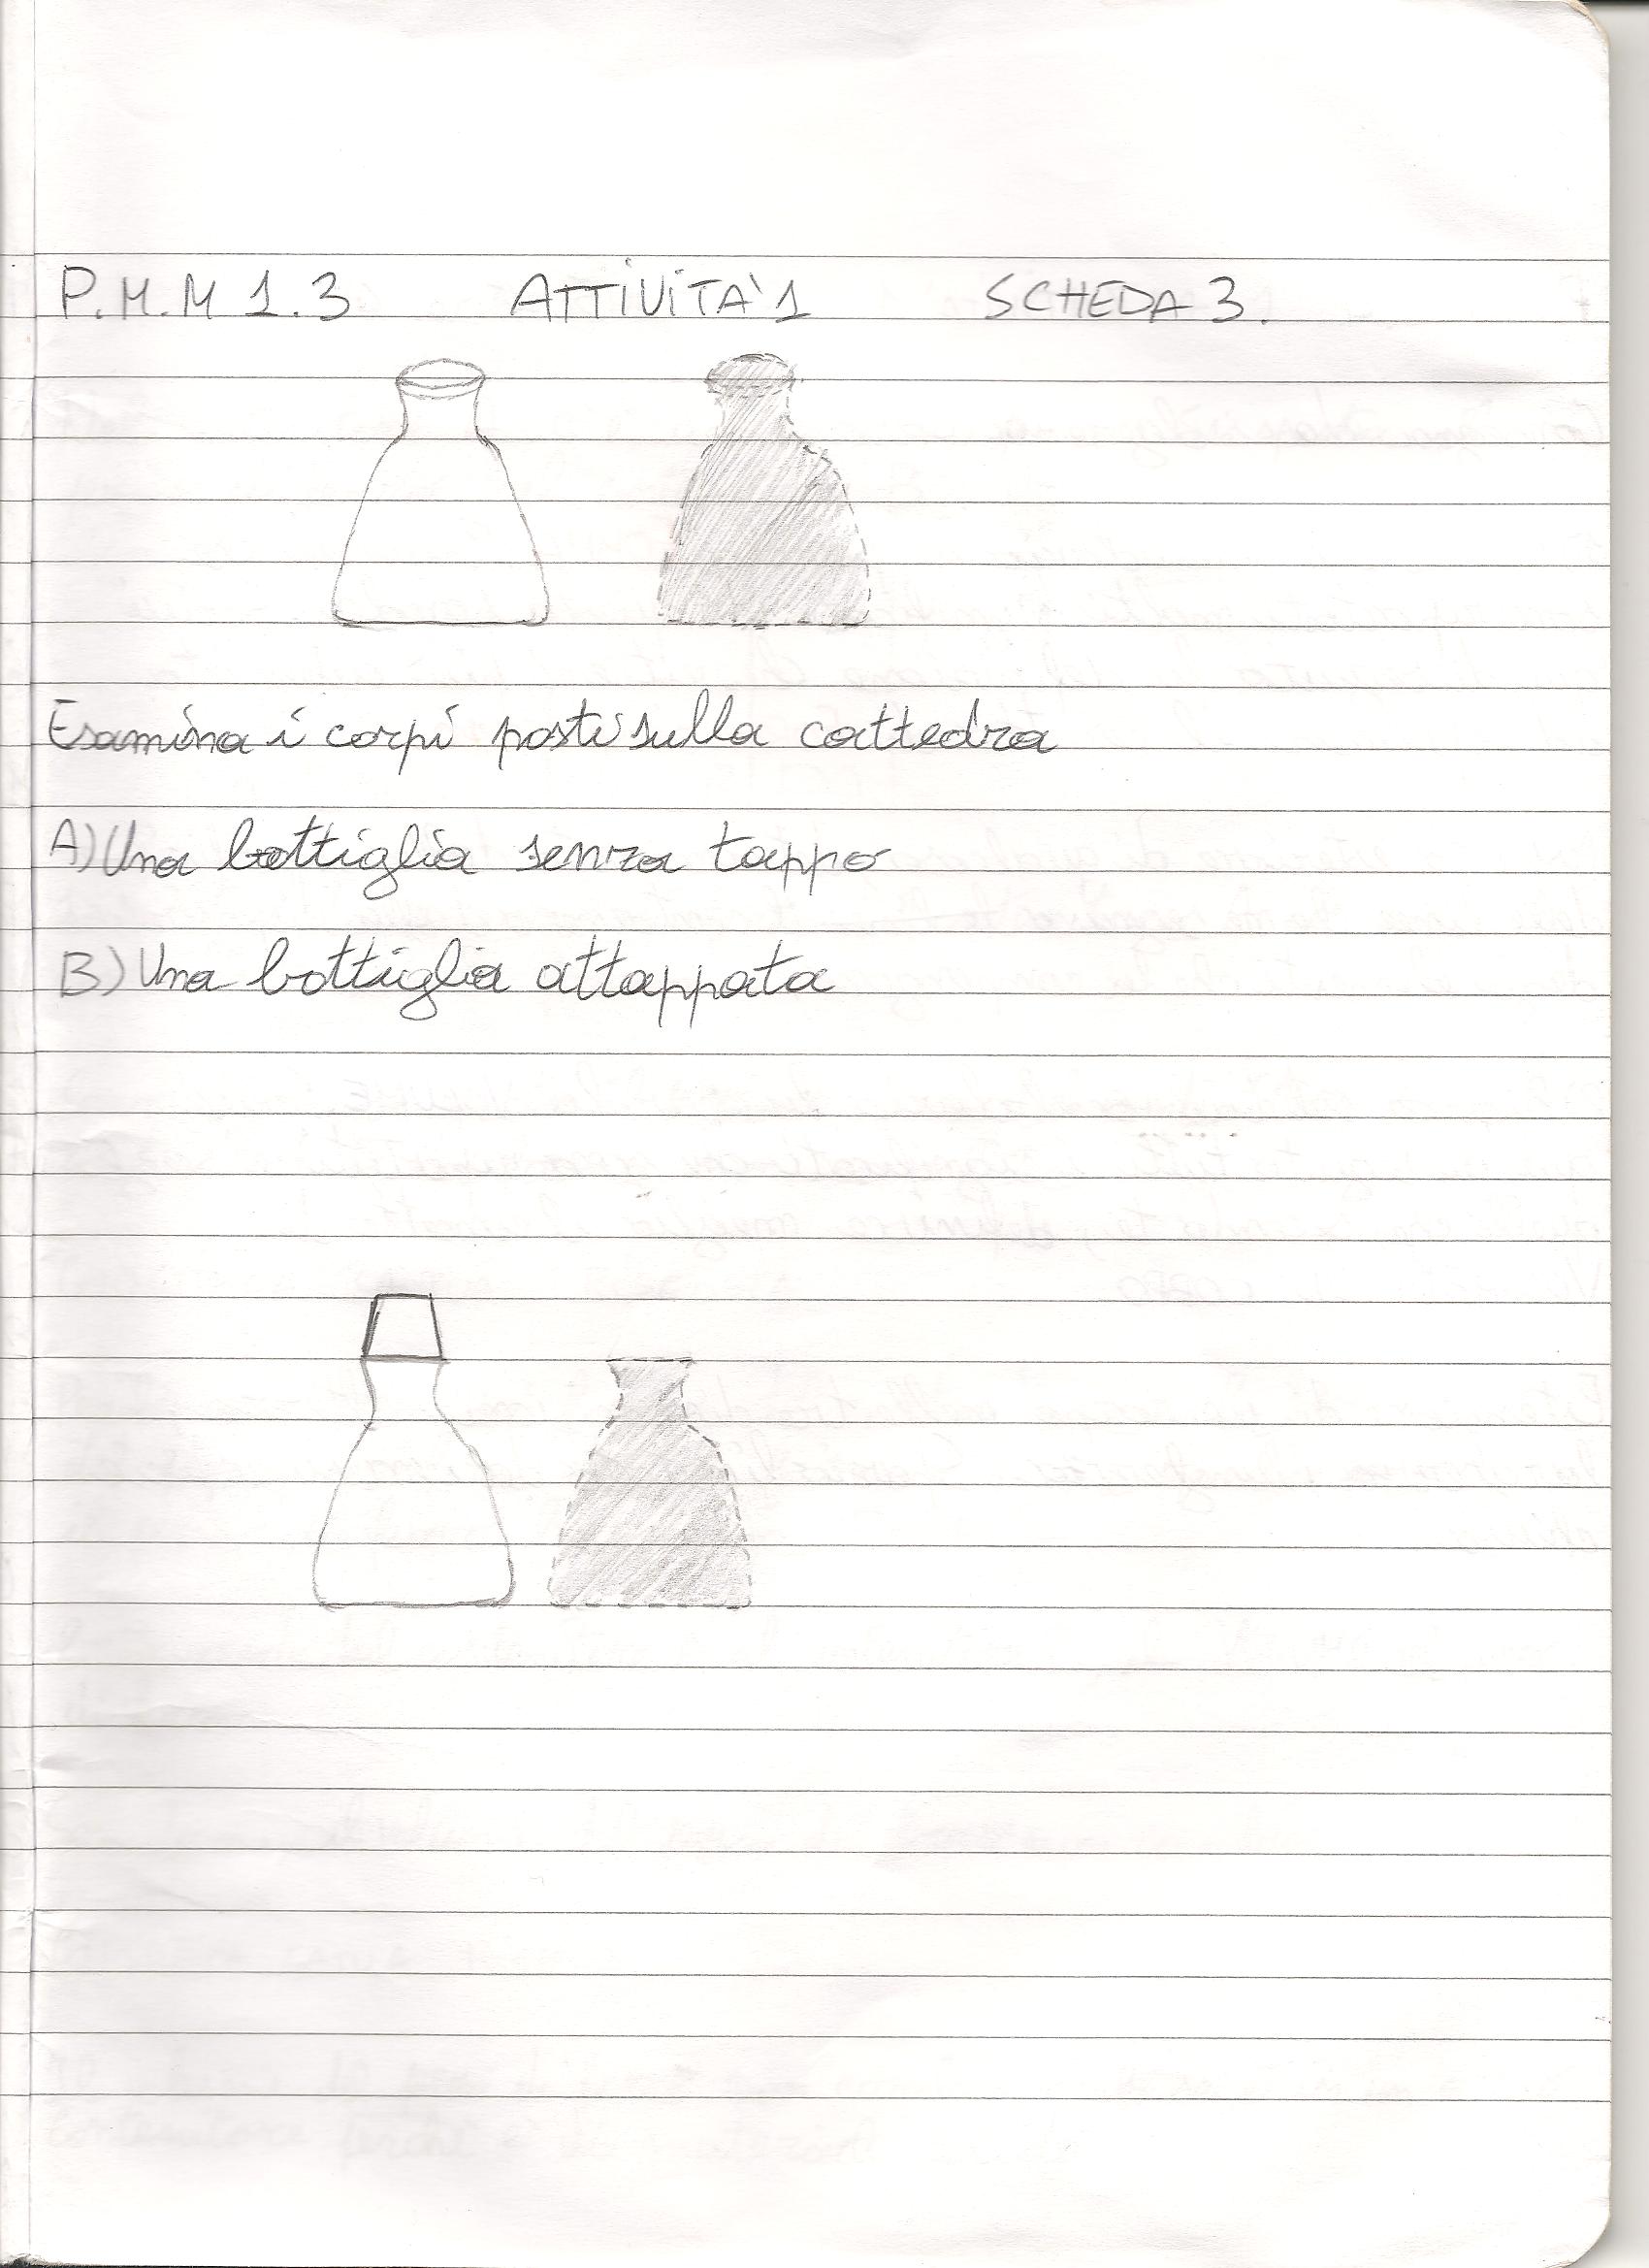 P.M.M 1.3 ATTIVITA'1 SCHEDA 3.
Esamina i corpi posti sulla cattedra
A) Una bottiglia senza tappo
B) Una bottiglia attappata